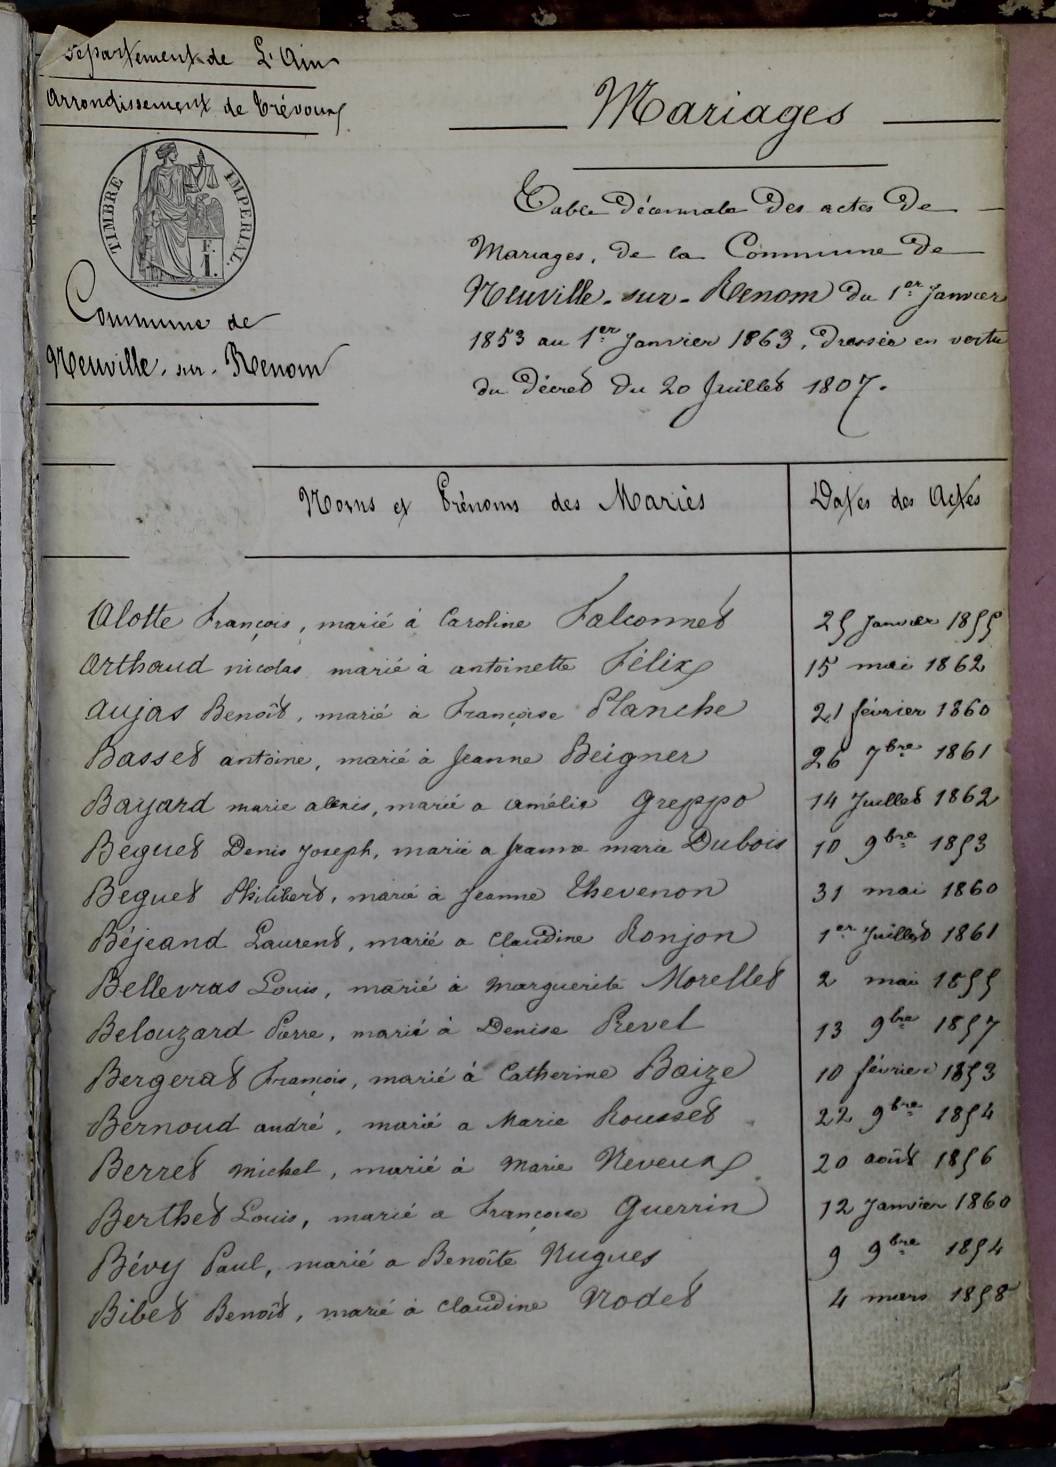 Département de L'Ain
Arrondissement de Trévoux
TIMBRE IMPERIAL
F. I.
Commune de
Neuville-sur-Renom
Mariages
Table décennale des actes de
Mariages, de la Commune de
Neuville-sur-Renom du 1er Janvier
1853 au 1er Janvier 1863, dressée en vertu
du Décret du 20 Juillet 1807.
Noms et Prénoms des Mariés Dates des Actes
Alotte François, marié à Caroline Falconnet 25 Janvier 1855
Arthaud nicolas marié à antoinette Félix 15 mai 1862
Aujas Benoît, marié à Françoise Planche 21 février 1860
Basset antoine, marié à Jeanne Beigner 26 7bre 1861
Bayard marie alexis, marié a amélie Greppo 14 Juillet 1862
Beguet Denis Joseph, marié a Jeanne marie Dubois 10 9bre 1853
Beguet Philibert, marié à Jeanne Thevenon 31 mai 1860
Béjeand Laurent, marié a Claudine Ronjon 1er Juillet 1861
Bellevras Louis, marié à Marguerite Morellet 2 mai 1855
Belouzard Pierre, marié à Denise Prevel 13 9bre 1857
Bergerat François, marié à Catherine Baize 10 février 1853
Bernoud andré, marié a Marie Rousset 22 9bre 1854
Berret michel, marié à Marie Neveux 20 août 1856
Berthet Louis, marié a Françoise Guerrin 12 Janvier 1860
Bévy Paul, marié a Benoîte Nugues 9 9bre 1854
Bibet Benoît, marié à Claudine Nodet 4 mars 1858